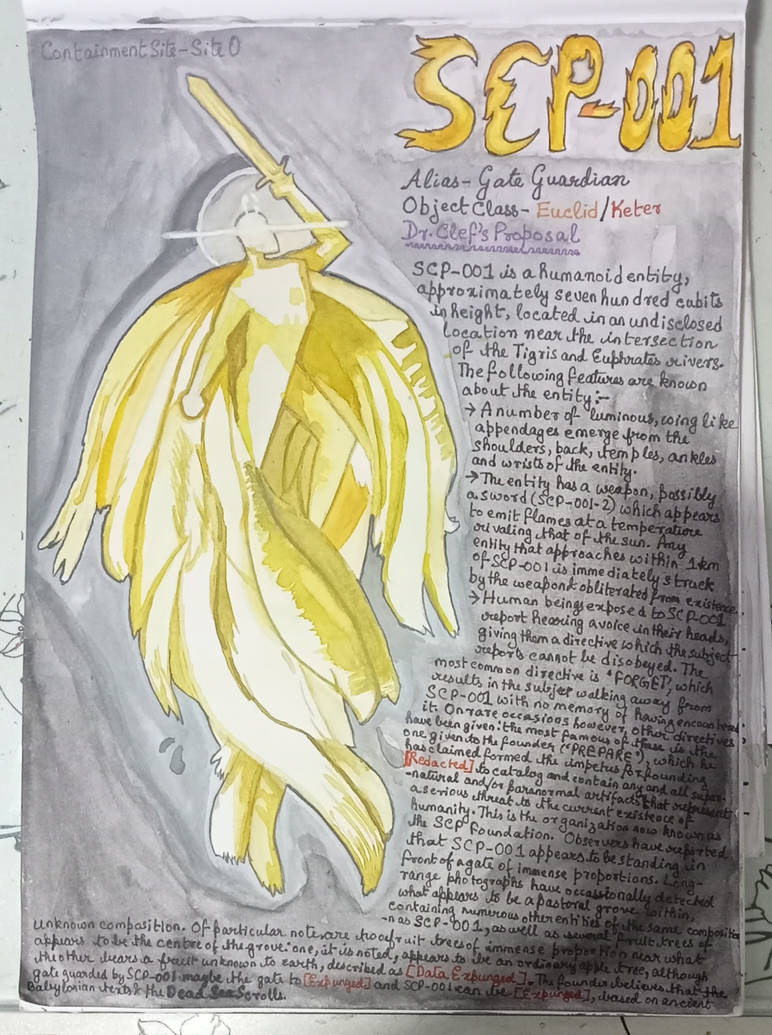 Containment Site - Site 0
SCP-001
Alias - Gate Guardian
Object Class - Euclid/Keter
Dr. Clef's Proposal
SCP-001 is a humanoid entity,
approximately seven hundred cubits
in height, located in an undisclosed
location near the intersection
of the Tigris and Euphrates rivers.
The following features are known
about the entity:-
→ A number of luminous, wing like
appendages emerge from the
shoulders, back, temples, ankles
and wrists of the entity.
→ The entity has a weapon, possibly
a sword (SCP-001-2) which appears
to emit flames at a temperature
rivaling that of the sun. Any
entity that approaches within 1km
of SCP-001 is immediately struck
by the weapon & obliterated from existence.
→ Human beings exposed to SCP-001
report hearing a voice in their heads,
giving them a directive which the subject
reports cannot be disobeyed. The
most common directive is "FORGET", which
results in the subject walking away from
SCP-001 with no memory of having encountered
it. On rare occasions however, other directives
have been given: the most famous of these is the
one given to the founder ("PREPARE"), which he
has claimed formed the impetus for founding
[Redacted] to catalog and contain any and all super-
-natural and/or paranormal artifacts that represent
a serious threat to the current existence of
humanity. This is the organization now known as
the SCP Foundation. Observers have reported
that SCP-001 appears to be standing in
front of a gate of immense proportions. Long-
range photographs have occassionally detected
what appears to be a pastoral grove within,
containing numerous other entities of the same composition
-n as SCP-001, as well as several fruit trees of
unknown composition. Of particular note are two fruit trees of immense proportion near what
appears to be the centre of the grove: one, it is noted, appears to be an ordinary apple tree, although
the other bears a fruit unknown to earth, described as [Data Expunged]. The founder believes that the
gate guarded by SCP-001 maybe the gate to [Expunged] and SCP-001 can be [Expunged], based on ancient
Babylonian texts & the Dead Sea Scrolls.